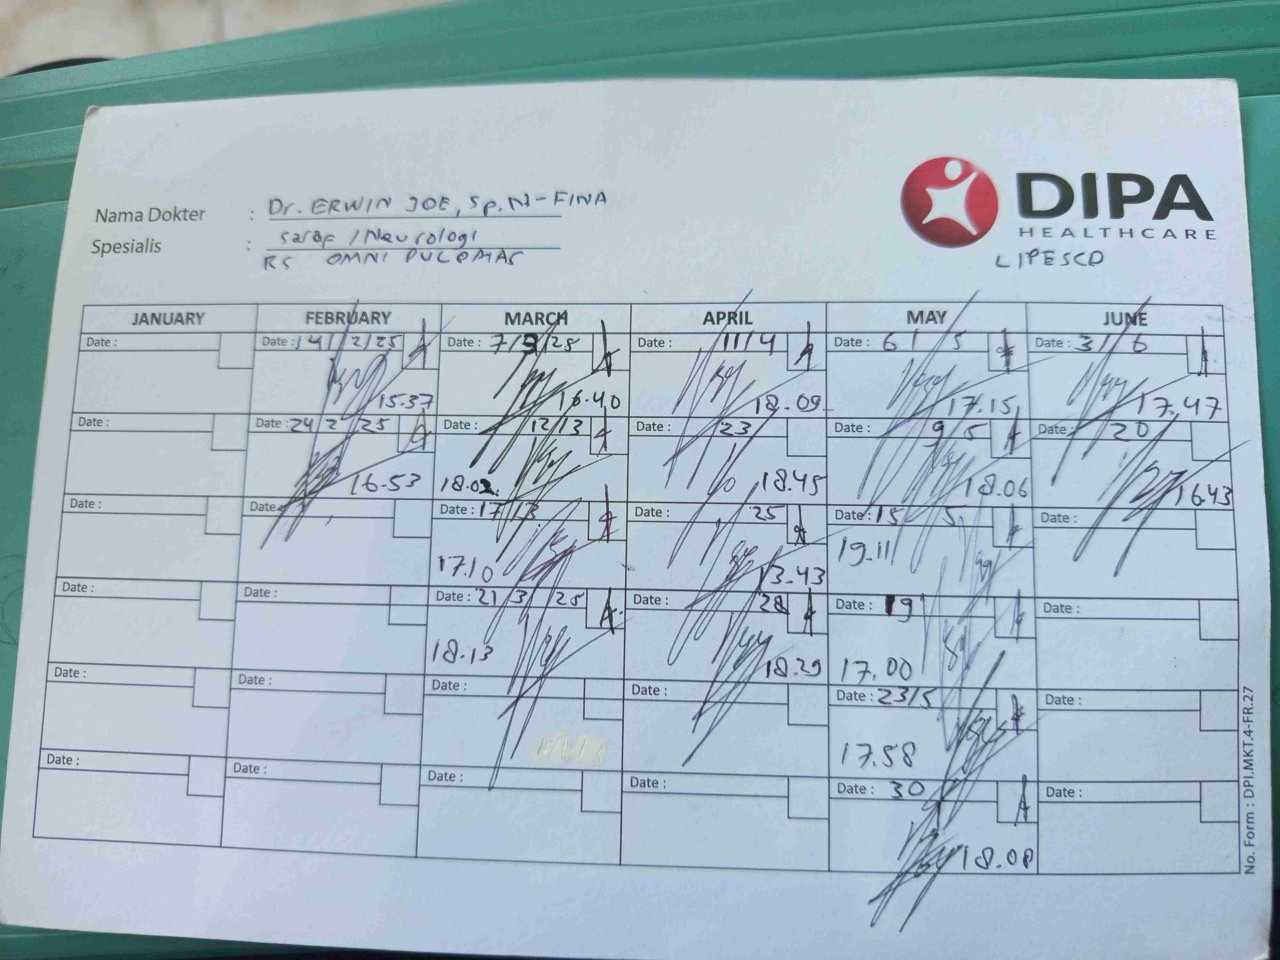 DIPA
HEALTHCARE
LIPESCO
Nama Dokter : Dr. ERWIN JOE, Sp.N - FINA
Spesialis : Saraf / Neurologi
RS OMNI PULOMAS
JANUARY FEBRUARY MARCH APRIL MAY JUNE
Date : Date : 14/2/25 Date : 7/3/25 Date : 11/4 Date : 6/5 Date : 3/6
15.37 16.40 18.09 17.15 17.47
Date : Date : 24 2 25 Date : 12/3 Date : 23 Date : 9 5 Date : 20
16.53 18.02 18.45 18.06 16.43
Date : Date : Date : 17/3 Date : 25 Date : 15 5 Date :
17.10 13.43 19.11
Date : Date : Date : 21/3/25 Date : 28 Date : 19 Date :
18.13 18.29 17.00
Date : Date : Date : Date : Date : 23/5 Date :
17.58
Date : Date : Date : Date : Date : 30 Date :
18.08
No. Form : DPI.MKT.4-FR.27